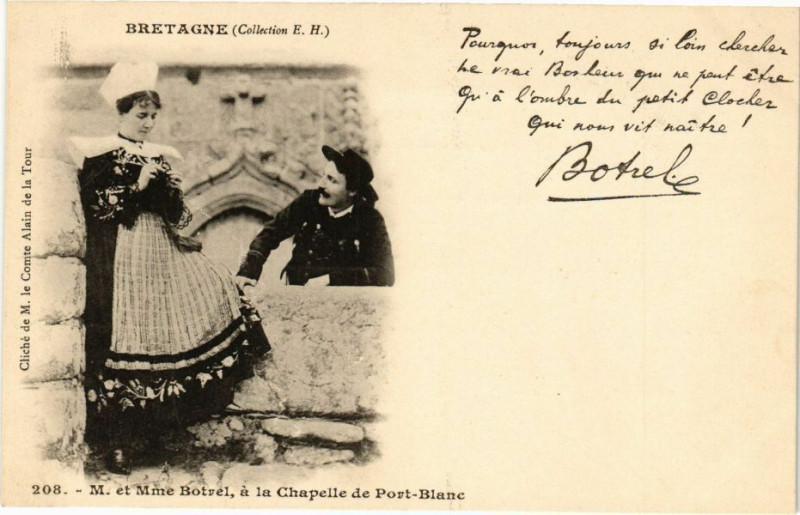 BRETAGNE (Collection E. H.)
Cliché de M. le Comte Alain de la Tour
Pourquoi, toujours si loin chercher
Le vrai Bonheur qui ne peut être
Qu'à l'ombre du petit Clocher
Qui nous vit naître !
Botrel.
208. - M. et Mme Botrel, à la Chapelle de Port-Blanc